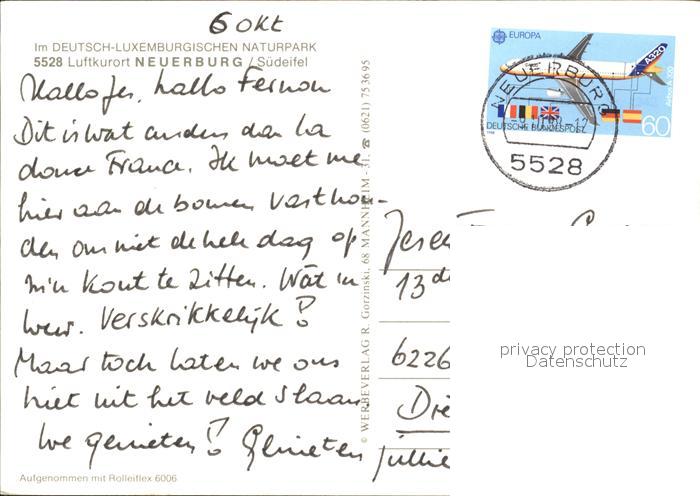 6 okt
Im DEUTSCH-LUXEMBURGISCHEN NATURPARK
5528 Luftkurort NEUERBURG / Südeifel
Hallo Jes, hallo Fernon
Dit is wat anders dan la
douce France. Ik moet me
hier aan de bomen vasthou-
den om niet de hele dag op
m'n kont te zitten. Wat 'n
weer. Verskrikkelijk!
Maar toch laten we ons
niet uit het veld slaan.
We genieten! Genieten
jullie
© WERBEVERLAG R. Gorzinski, 68 MANNHEIM - 31, ☎ (0621) 753695
Aufgenommen mit Rolleiflex 6006
EUROPA
A320
Airbus A320
DEUTSCHE BUNDESPOST
60
NEUERBURG
5528
13 de
6226
privacy protection
Datenschutz